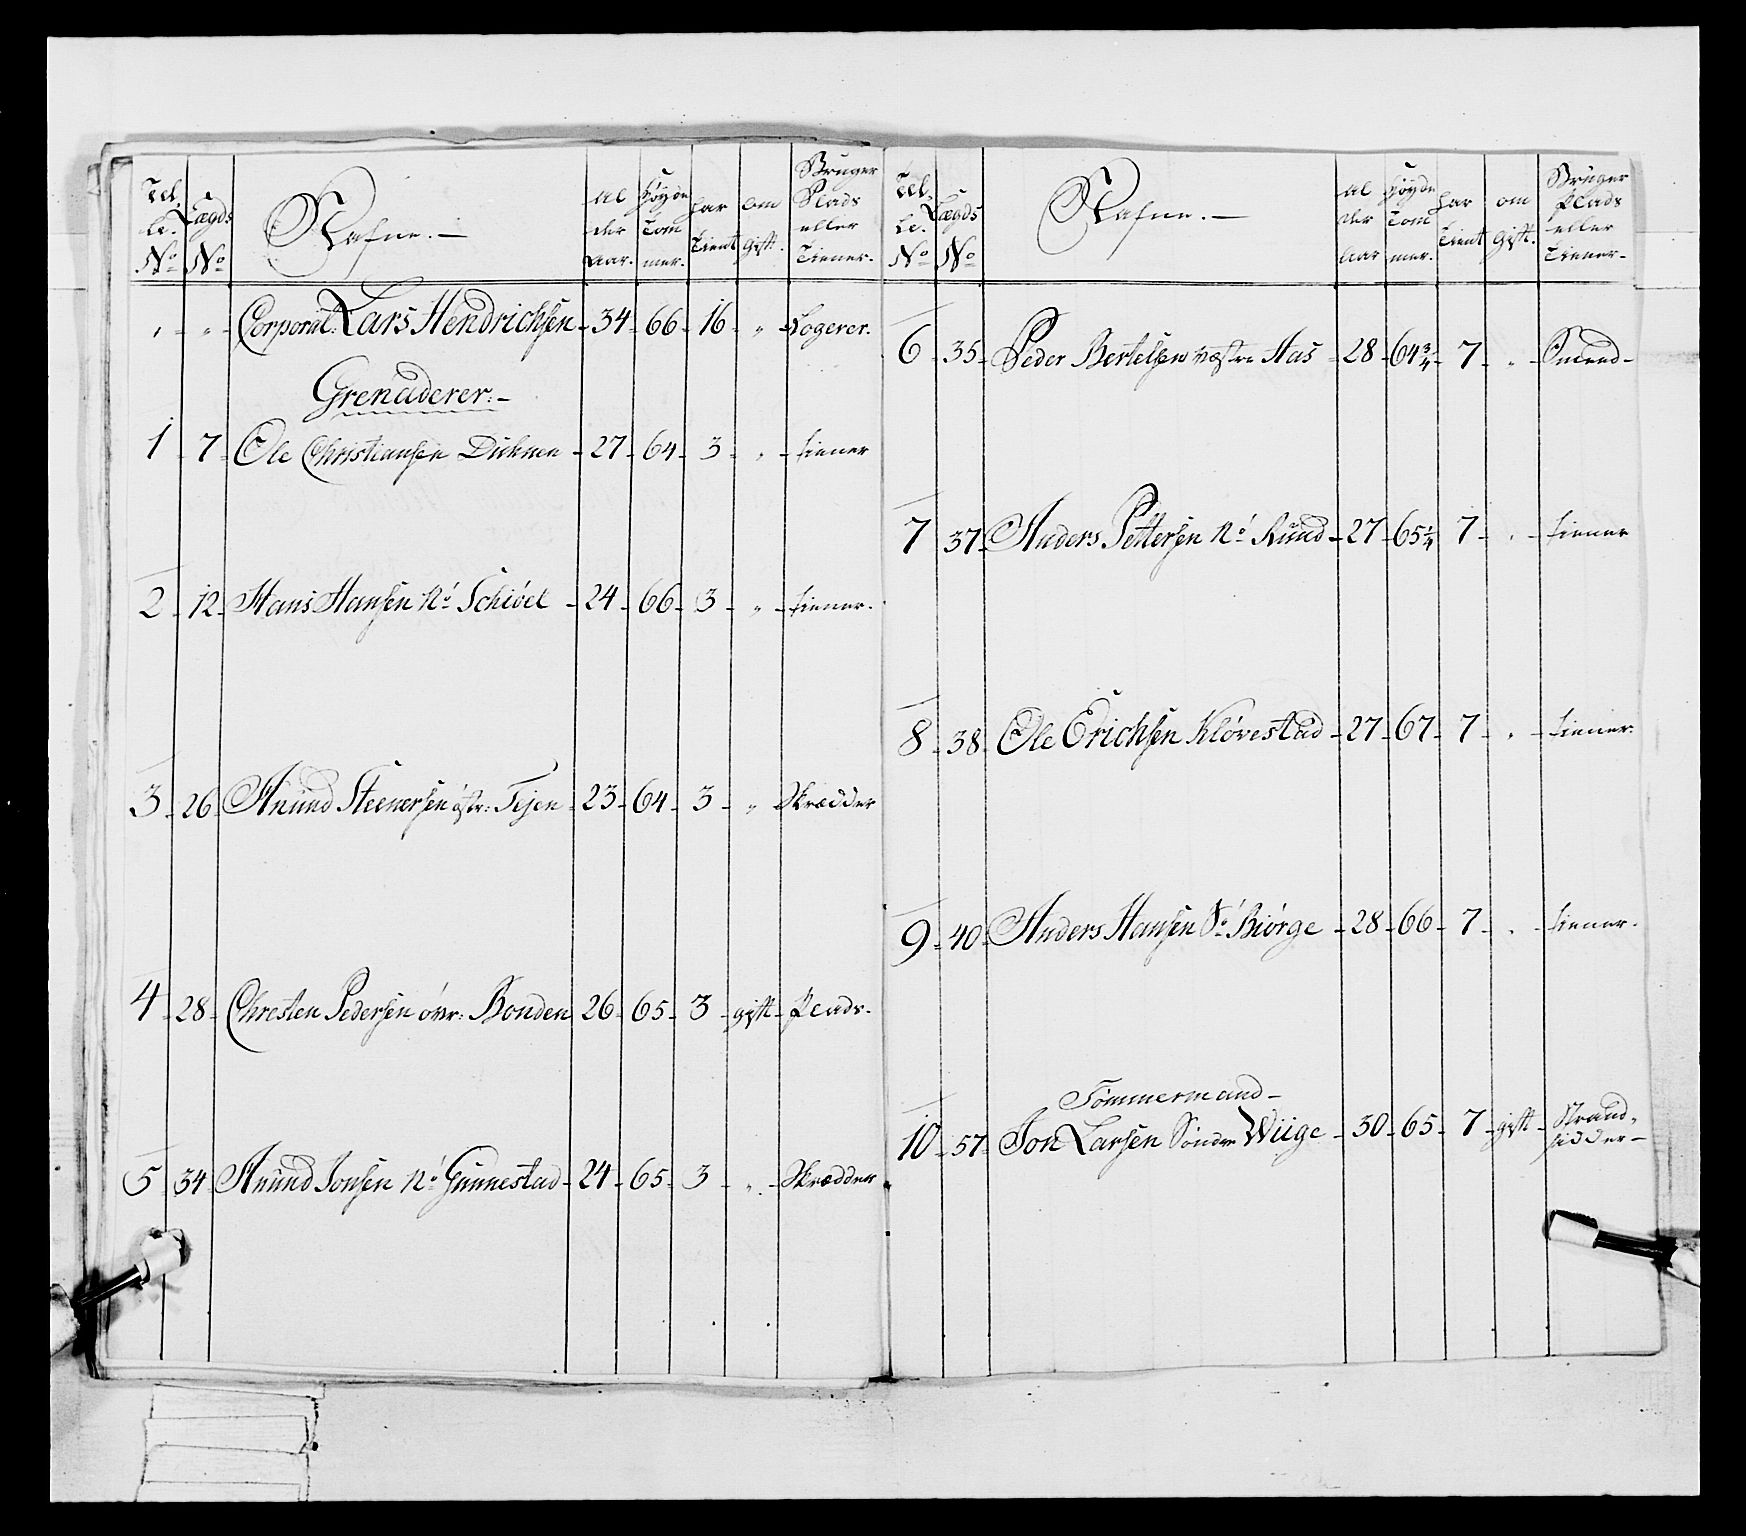 Tel.
le.
No
Lægds
No
Nafne.
Al
der
Aar.
Høyde
Tom
mer.
har
tient
om
gift.
Bruger
Plads
eller
Tiener.
" " Corporal: Lars Hendrichsen 34 66 16 " Logerer.
Grenaderer:
1 7 Ole Christiansen Duknen 27 64 3 " tiener
2 12 Hans Hansen No Schiöel 24 66 3 " tiener.
3 26 Anund Steenersen östr: Tejen 23 64 3 " Skrædder
4 28 Chresten Pedersen övr: Bonden 26 65 3 gift Plads.
5 34 Anund Jonsen No Gunnestad 24 65 3 " Skrædder
Tel.
le.
No
Lægds
No
Nafne.
Al
der
Aar
Høyde
Tom
mer.
har
tient
om
gift.
Bruger
Plads
eller
Tiener.
6 35 Peder Bertelsen væstre Aas 28 64¾ 7 " Smed
7 37 Anders Pettersen No Rund 27 65¼ 7 " tiener
8 38 Ole Erichsen Klövestad 27 67 7 " tiener.
9 40 Anders Hansen So Biörge 28 66 7 " tiener.
Tömmermand
10 57 Jon Larsen Söndre Wiige 30 65 7 gift Strand-
sidder